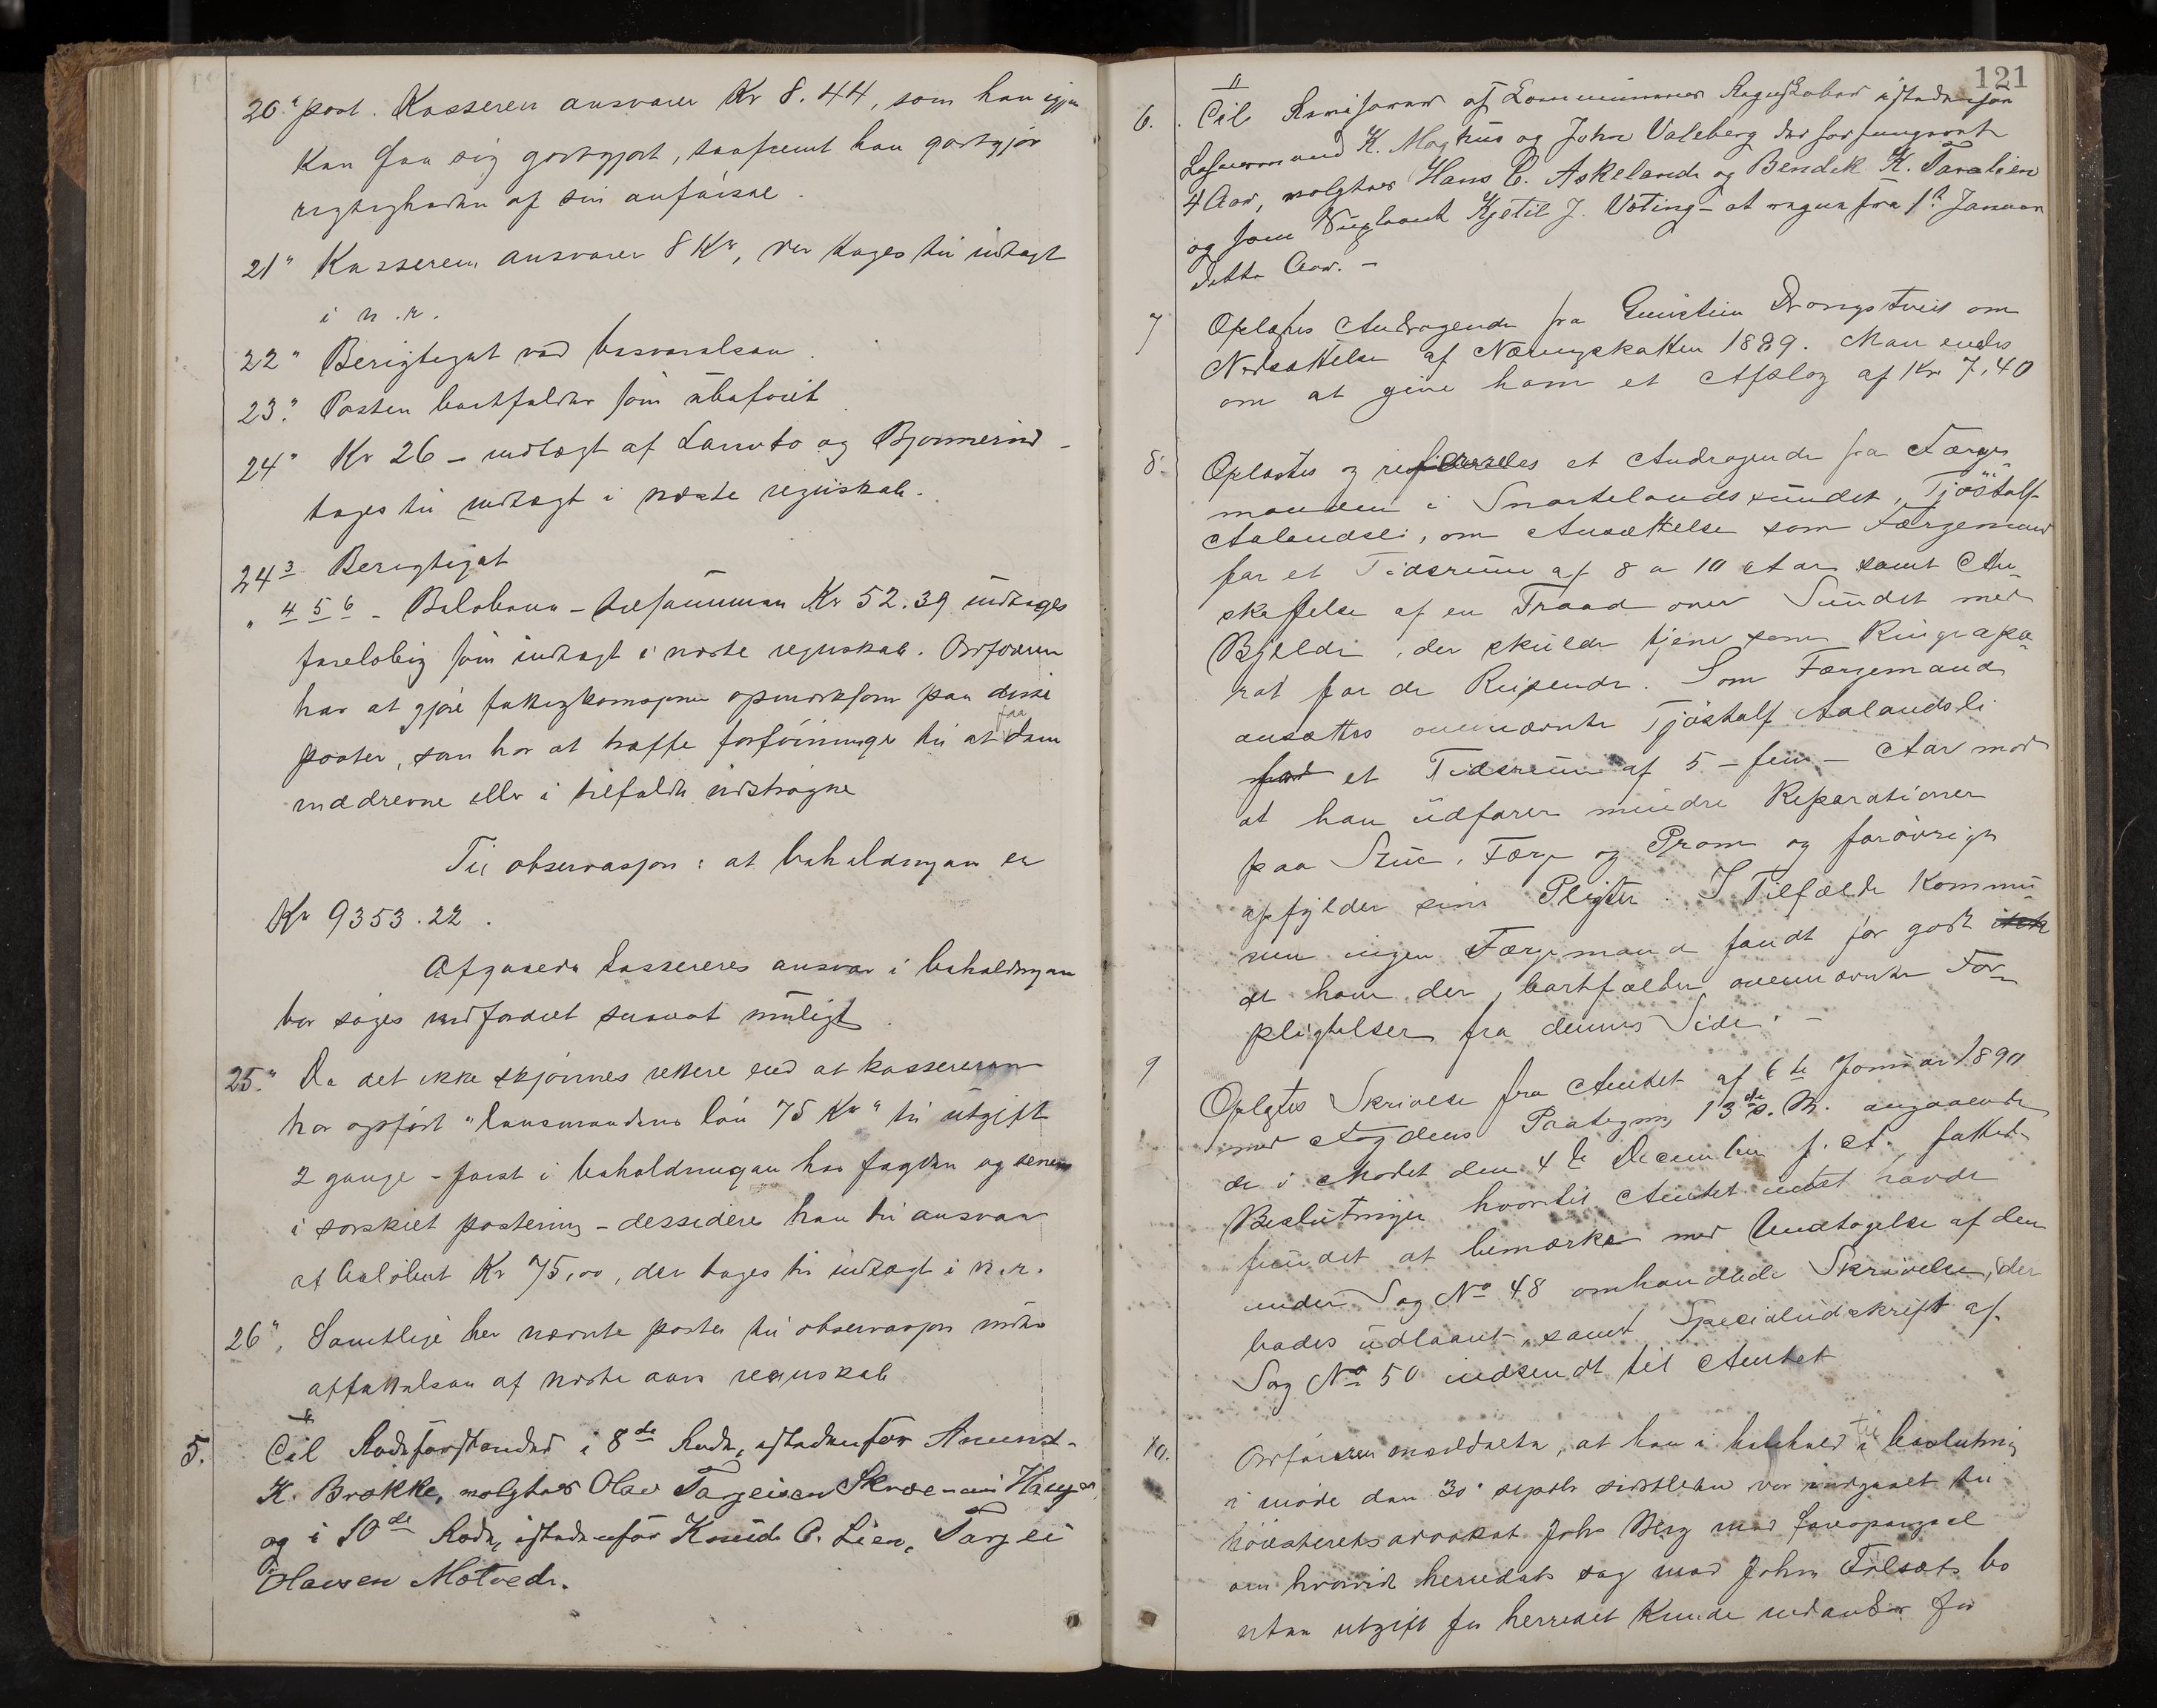 20" post. Kasseren ansvarer Kr 8.44, som han igjen
kan faa sig godtgjort, saafremt han godtgjør
rigtigheden af sin anførsel.
21" Kasseren ansvarer 8 Kr, der tages til indtægt
i n.r.
22" Berigtiget ved besvarelsen.
23." Posten bortfalder som ubeføiet
24" Kr 26 – indtægt af Larvto og Bjonnerud –
tages til indtægt i næste regnskab.
24 3 Berigtiget
" 4 5 6 – Beløbene – tilsammen Kr 52.39 indtages
foreløbig som indtægt i næste regnskab. Ordføreren
har at gjøre fattigkomisjonen opmerksom paa disse
poster, som har at træffe forføininger til at faa dem
inddrevne eller i tilfælde udstrøgne
Til observasjon: at beholdningen er
Kr 9353.22.
Afgaaede kassereres ansvar i beholdningen
bør søges indfordret snarest muligt.
25." Da det ikke skjønnes rettere end at kassereren
har opført "lensmandens løn 75 Kr" til utgift
2 gange – først i beholdningen hos fogden og senere
i særskilt postering – dessideres han til ansvar
at beløbet Kr 75,00, der tages til indtægt i n.r.
26". Samtlige her nævnte poster til observasjon ved
affattelsen af næste aars regnskab
5. Til Rodeforstander i 8de Rode, istedenfor Anund
K. Brokke, valgtes Olav Torgeisen Skroe – Haugen
og i 10de Rode, istedenfor Knud O. Lien, Torgei
Olavsen Motvedt.
121
6. Til Revisorer af Kommunens Regnskaber istedenfor
Lensmand K. Maghus og John Valeberg der har fungeret
4 Aar, valgtes Hans C. Askelands og Bendik K. Taralien
og som Suppleant Kjetil J. Uting – at regne fra 1st Januar
dette Aar. –
7 Oplæstes Andragende fra Gunstein Drongstveit om
Nedsættelse af Næringskatten 1889. Man enedes
om at give ham et Afslag af Kr. 7,40
8. Oplæstes og refereredes et Andragende fra Færge-
manden i Smartelandssundet, Tjøstolf
Aalandsli, om Ansættelse som Færgemand
for et Tidsrum af 8 a 10 Aar samt An-
skaffelse af en Traad over Sundet med
Bjelde, der skulde tjene som Ringeapa-
rat for de Reisende. Som Færgemand
ansættes ovennævnte Tjøstolf Aalandsli
for et Tidsrum af 5 – fem – Aar mod
at han udfører mindre Reparationer
paa Stue, Færge og Pram og forøvrigt
opfylder sine Pligter. I Tilfælde Kommu-
nen ingen Færgemand fandt for godt
at have der, bortfalder ovennævnte For-
pligtelser fra dennes Side. –
9 Oplæstes Skrivelse fra Amtet af 6te Januar 1890
med Fogdens Paategn. 13de s. M. angaaende
de i Mødet den 4de December f. A. fattede
Beslutninger hvortil Amtet intet havde
fundet at bemærke med Undtagelse af den
under Sag No 48 omhandlede Skrivelse, der
bades udlaant, samt Specialudskrift af
Sag No 50 indsendt til Amtet
10. Ordføreren meddelte, at han i henhold til beslutning
i møde den 30 septbr sidstleden var indgaaet til
høiesteretsadvokat Johs Berg med forespørgsel
om hvorvidt herredets sag mod John Tilsæts bo
uten utgift for herredet kunde indankes for